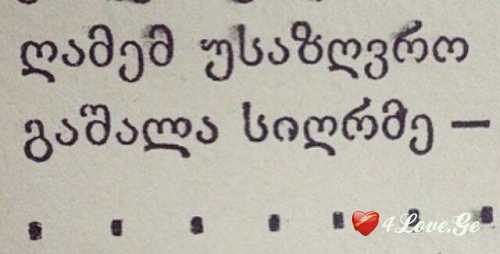 ღამემ უსაზღვრო
გაშალა სიღრმე —
. . . . . . .
4Love.Ge